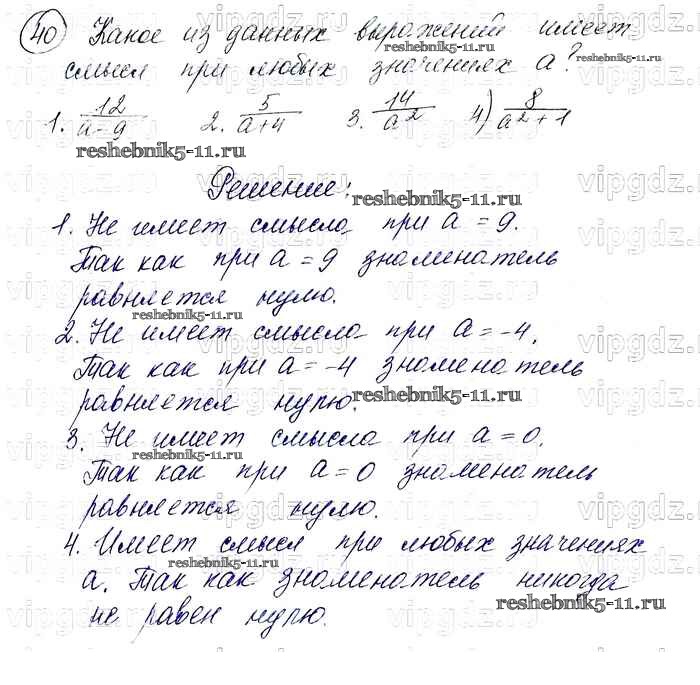 40 Какое из данных выражений имеет
смысл при любых значениях a?
1. 12/(a-9) 2. 5/(a+4) 3. 14/a² 4) 8/(a²+1)
Решение:
1. Не имеет смысла при a = 9.
Так как при a = 9 знаменатель
равняется нулю.
2. Не имеет смысла при a = -4.
Так как при a = -4 знаменатель
равняется нулю.
3. Не имеет смысла при a = 0.
Так как при a = 0 знаменатель
равняется нулю.
4. Имеет смысл при любых значениях
a. Так как знаменатель никогда
не равен нулю.
reshebnik5-11.ru
vipgdz.ru